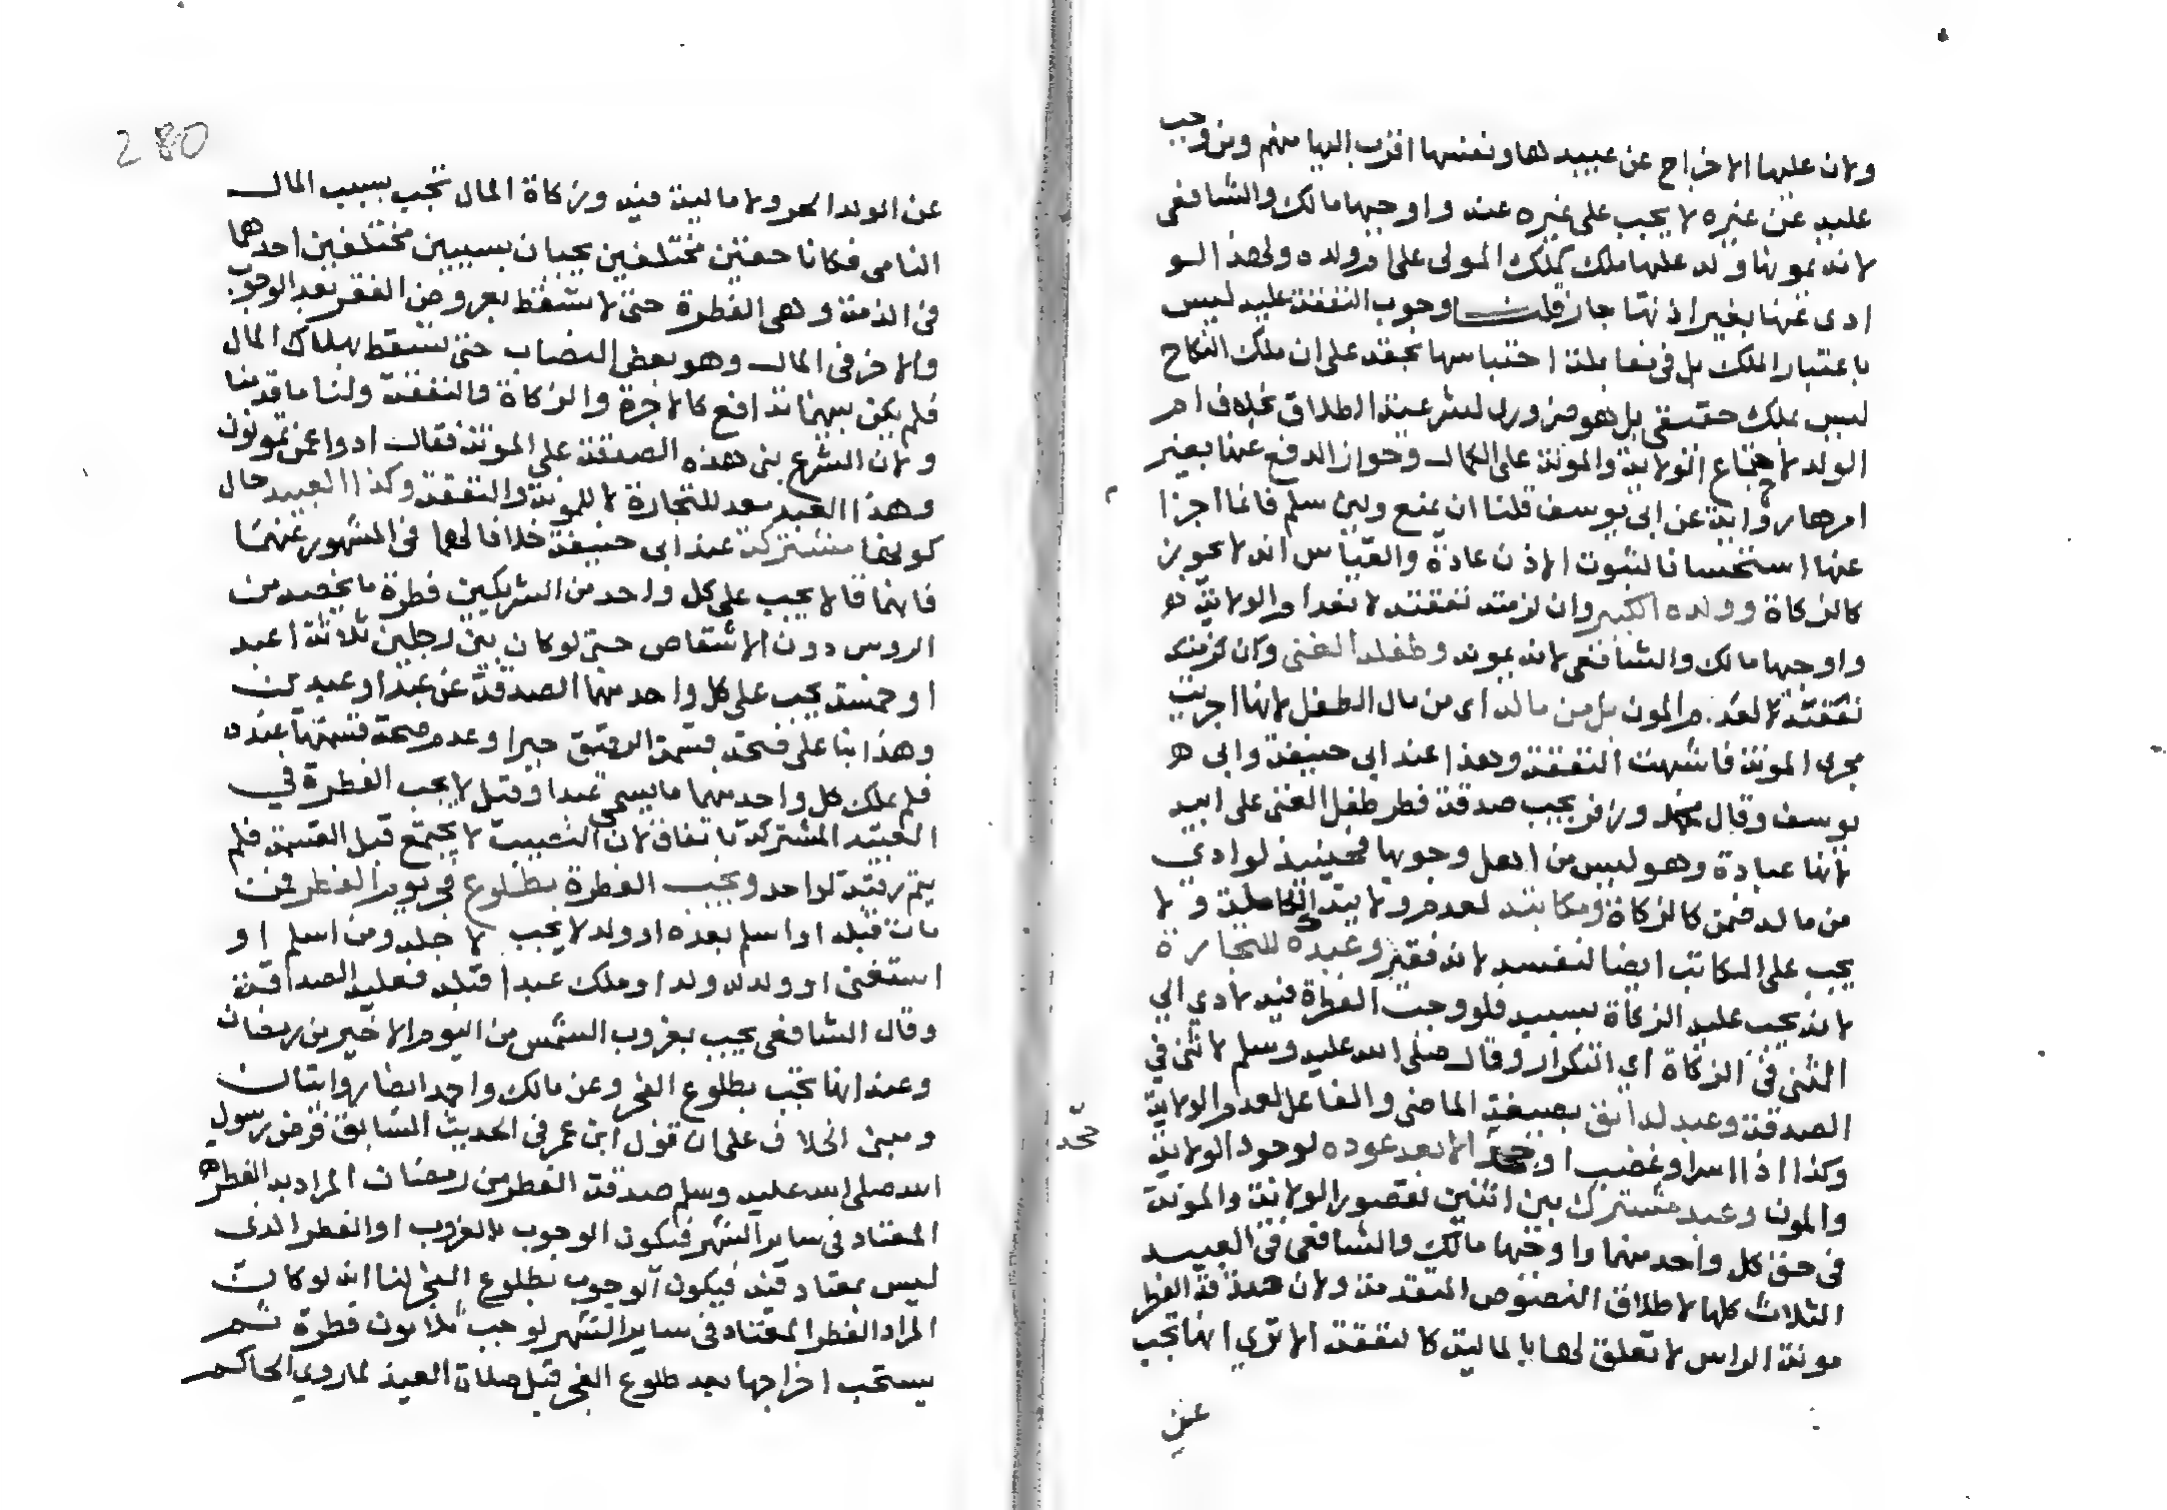 ولان عليها الاخراج عن عبيدها ونفسها اقرب اليها منهم ومن وجب
عليه عن غيره لا يجب على غيره عنه واوجبها مالك والشافعي
لانه يمونها وله عليها ملك كملك المولى على ام ولده ولهذا لو
ادى عنها بغير اذنها جاز قلت وجوب النفقة عليه ليس
باعتبار الملك بل في مقابلة احتباسها بحقه على ان ملك النكاح
ليس بملك حقيقي بل هو ضروري لشرعية الطلاق بخلاف ام
الولد لاجتماع الولاية والمونة على الكمال وجواز الدفع عنها بغير
امرها رواية عن ابي يوسف قلنا ان يمنع ولين سلم فانما اجزا
عنها استحسانا لثبوت الاذن عادة والقياس انه لا يجوز
كالزكاة وولده الكبير وان لزمته نفقته لانعدام الولاية
واوجبها مالك والشافعي لانه يمونه وطفله الغني وان لزمته
نفقته لعدم المون بل من ماله اي من مال الطفل لانها اجريت
مجرى المونة فاشبهت النفقة وهذا عند ابي حنيفة وابي
يوسف وقال محمد وزفر يجب صدقة فطر طفل الغني على ابيه
لانها عبادة وهو ليس من اهل وجوبها فحينيذ لو ادى
من ماله ضمن كالزكاة ومكاتبه لعدم ولايته الكاملة ولا
يجب على المكاتب ايضا لنفسه لانه فقير وعبده للتجارة
لانه يجب عليه الزكاة بسببه فلو وجبت الفطرة فيه لادي الى
الثنى في الزكاة اي التكرار وقال صلى الله عليه وسلم لا ثنى في
الصدقة وعبد له ابق بصيغة الماضي والفاعل لعدم الولاية
وكذا اذا اسر او غصب او جحد الا بعد عوده لوجود الولاية
والمون وعبد مشترك بين اثنين لقصور الولاية والمونة
في حق كل واحد منهما واوجبها مالك والشافعي في العبيد
الثلاث كلها لاطلاق النصوص المتقدمة ولان صدقة الفطر
مونة الراس لا تعلق لها بالمالية كالنفقة الا ترى انها تجب
عن
280
عن الولد الحر ولا مالية فيه وزكاة المال تجب بسبب المال
النامي فكانا حقين مختلفين يجبان بسببين مختلفين احدهما
في الذمة وهي الفطرة حتى لا تسقط بعروض الفقر بعد الوجوب
والاخر في المال وهو بعض النصاب حتى تسقط بهلاك المال
فلم يكن بينهما تدافع كالاجرة والزكاة والنفقة ولنا ما قدمنا
ولان الشرع بنى هذه الصدقة على المونة فقال ادوا عمن تمونون
وهذا العبد معد للتجارة لا للمونة والنفقة وكذا العبيد حال
كونها مشتركة عند ابي حنيفة خلافا لهما في المشهور عنهما
فانهما قالا يجب على كل واحد من الشريكين فطرة ما يخصه من
الروس دون الاشقاص حتى لو كان بين رجلين ثلاثة اعبد
او خمسة يجب على كل واحد منهما الصدقة عن عبد او عبدين
وهذا بنا على قسمة الرقيق جبرا وعدم صحة قسمتها عنده
فلم يملك كل واحد منهما ما يسمى عبدا وقيل لا يجب الفطرة في
العبيد المشتركة باتفاق لان النصيب لا يجتمع قبل القسمة فلم
يتم رقبة لواحد ويجب الفطرة بطلوع فجر يوم الفطر فمن
مات قبله او اسلم بعده او ولد لا يجب لاجله ومن اسلم او
استغنى او ولد له ولد او ملك عبدا قبله فعليه الصدقة
وقال الشافعي يجب بغروب الشمس من اليوم الاخير من رمضان
وعندنا تجب بطلوع الفجر وعن مالك واحمد ايضا روايتان
ومبنى الخلاف على ان قول ابن عمر في الحديث السابق فرض رسول
الله صلى الله عليه وسلم صدقة الفطر من رمضان المراد به الفطر
المعتاد في ساير الشهر فيكون الوجوب بالغروب او الفطر الذي
ليس بمعتاد فيه فيكون الوجوب بطلوع الفجر لنا انه لو كان
المراد الفطر المعتاد في ساير الشهر لوجب ثلاثون فطرة ثم
يستحب اخراجها بعد طلوع الفجر قبل صلاة العيد لما روي الحاكم